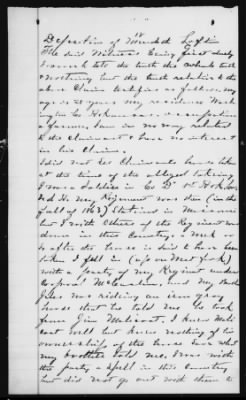 Deposition of Wm Loftin
The said Witness being first duly
sworn to tell the truth the whole truth
& nothing but the truth relative to the
above Claim testifies as follows, my
age is 28 years my residence Wash-
ington Co Arkansas. occupation
a farmer, I am in no way related
to the Claimant & have no interest
in his Claim.
I did not see Claimants horse taken
at the time of the alleged taking
I was a Soldier in Co D 1st Ark
my Regiment was then (in the
fall of 1863) Stationed in Missouri
but I with others of the Regiment was
down in this Country, a week or
so after the horse is said to have been
taken I fell in (up on West fork)
with a party of my Regiment under
Corporal and my brother
Giles was riding an iron gray
horse that he told me he took
from Jim I knew
well but knew nothing of his
ownership of the horse save what
my brother told me, I was with
the party a spell in this Country
but did not go out with them to